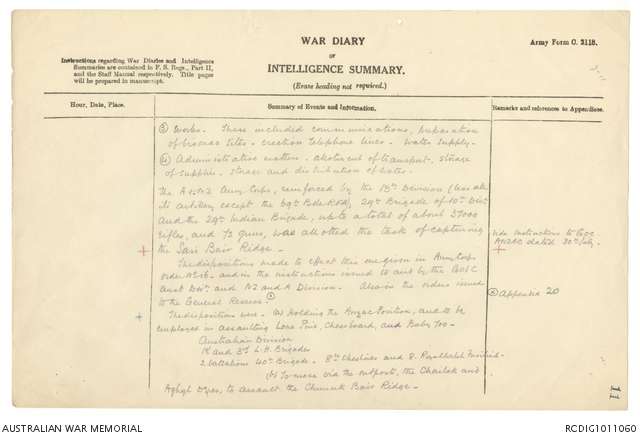 WAR DIARY
or
INTELLIGENCE SUMMARY.
(Erase heading not required.)
Army Form C. 2118.
Instructions regarding War Diaries and Intelligence
Summaries are contained in F. S. Regs., Part II,
and the Staff Manual respectively. Title pages
will be prepared in manuscript.
Hour, Date, Place.
Summary of Events and Information.
Remarks and references to Appendices.
(3) Works. These included communications, preparation
of bivouac sites - erection telephone lines - Water Supply -
(4) Administrative matters - allotment of transport - storage
of supplies - storage and distribution of water.
The A & NZ Army Corps, reinforced by the 13th Division (less all
its artillery except the 69th Bde RFA), 29th Brigade of 10th Divn
and the 29th Indian Brigade, up to a total of about 37000
rifles, and 72 guns, was allotted the task of capturing
the Sari Bair Ridge -
vide Instructions to GOC
ANZAC dated 30th July.
The dispositions made to effect this are given in Army Corps
order No 16 - and in the instructions issued to and by the GOC
Aust Divn and NZ and A Division. Also in the orders issued
to the General Reserve.
Appendix 20
The dispositions were - (a) Holding the Anzac Position, and to be
employed in assaulting Lone Pine, Chessboard, and Baby 700 -
Australian Division
1st and 3rd L.H. Brigades
2 battalions 40th Brigade - 8th Cheshires and 8. Royal Welsh Fusiliers
(b) To move via the outposts, the Chailak and
Aghyl Deres, to assault the Chunuk Bair Ridge -
11
AUSTRALIAN WAR MEMORIAL
RCDIG1011060